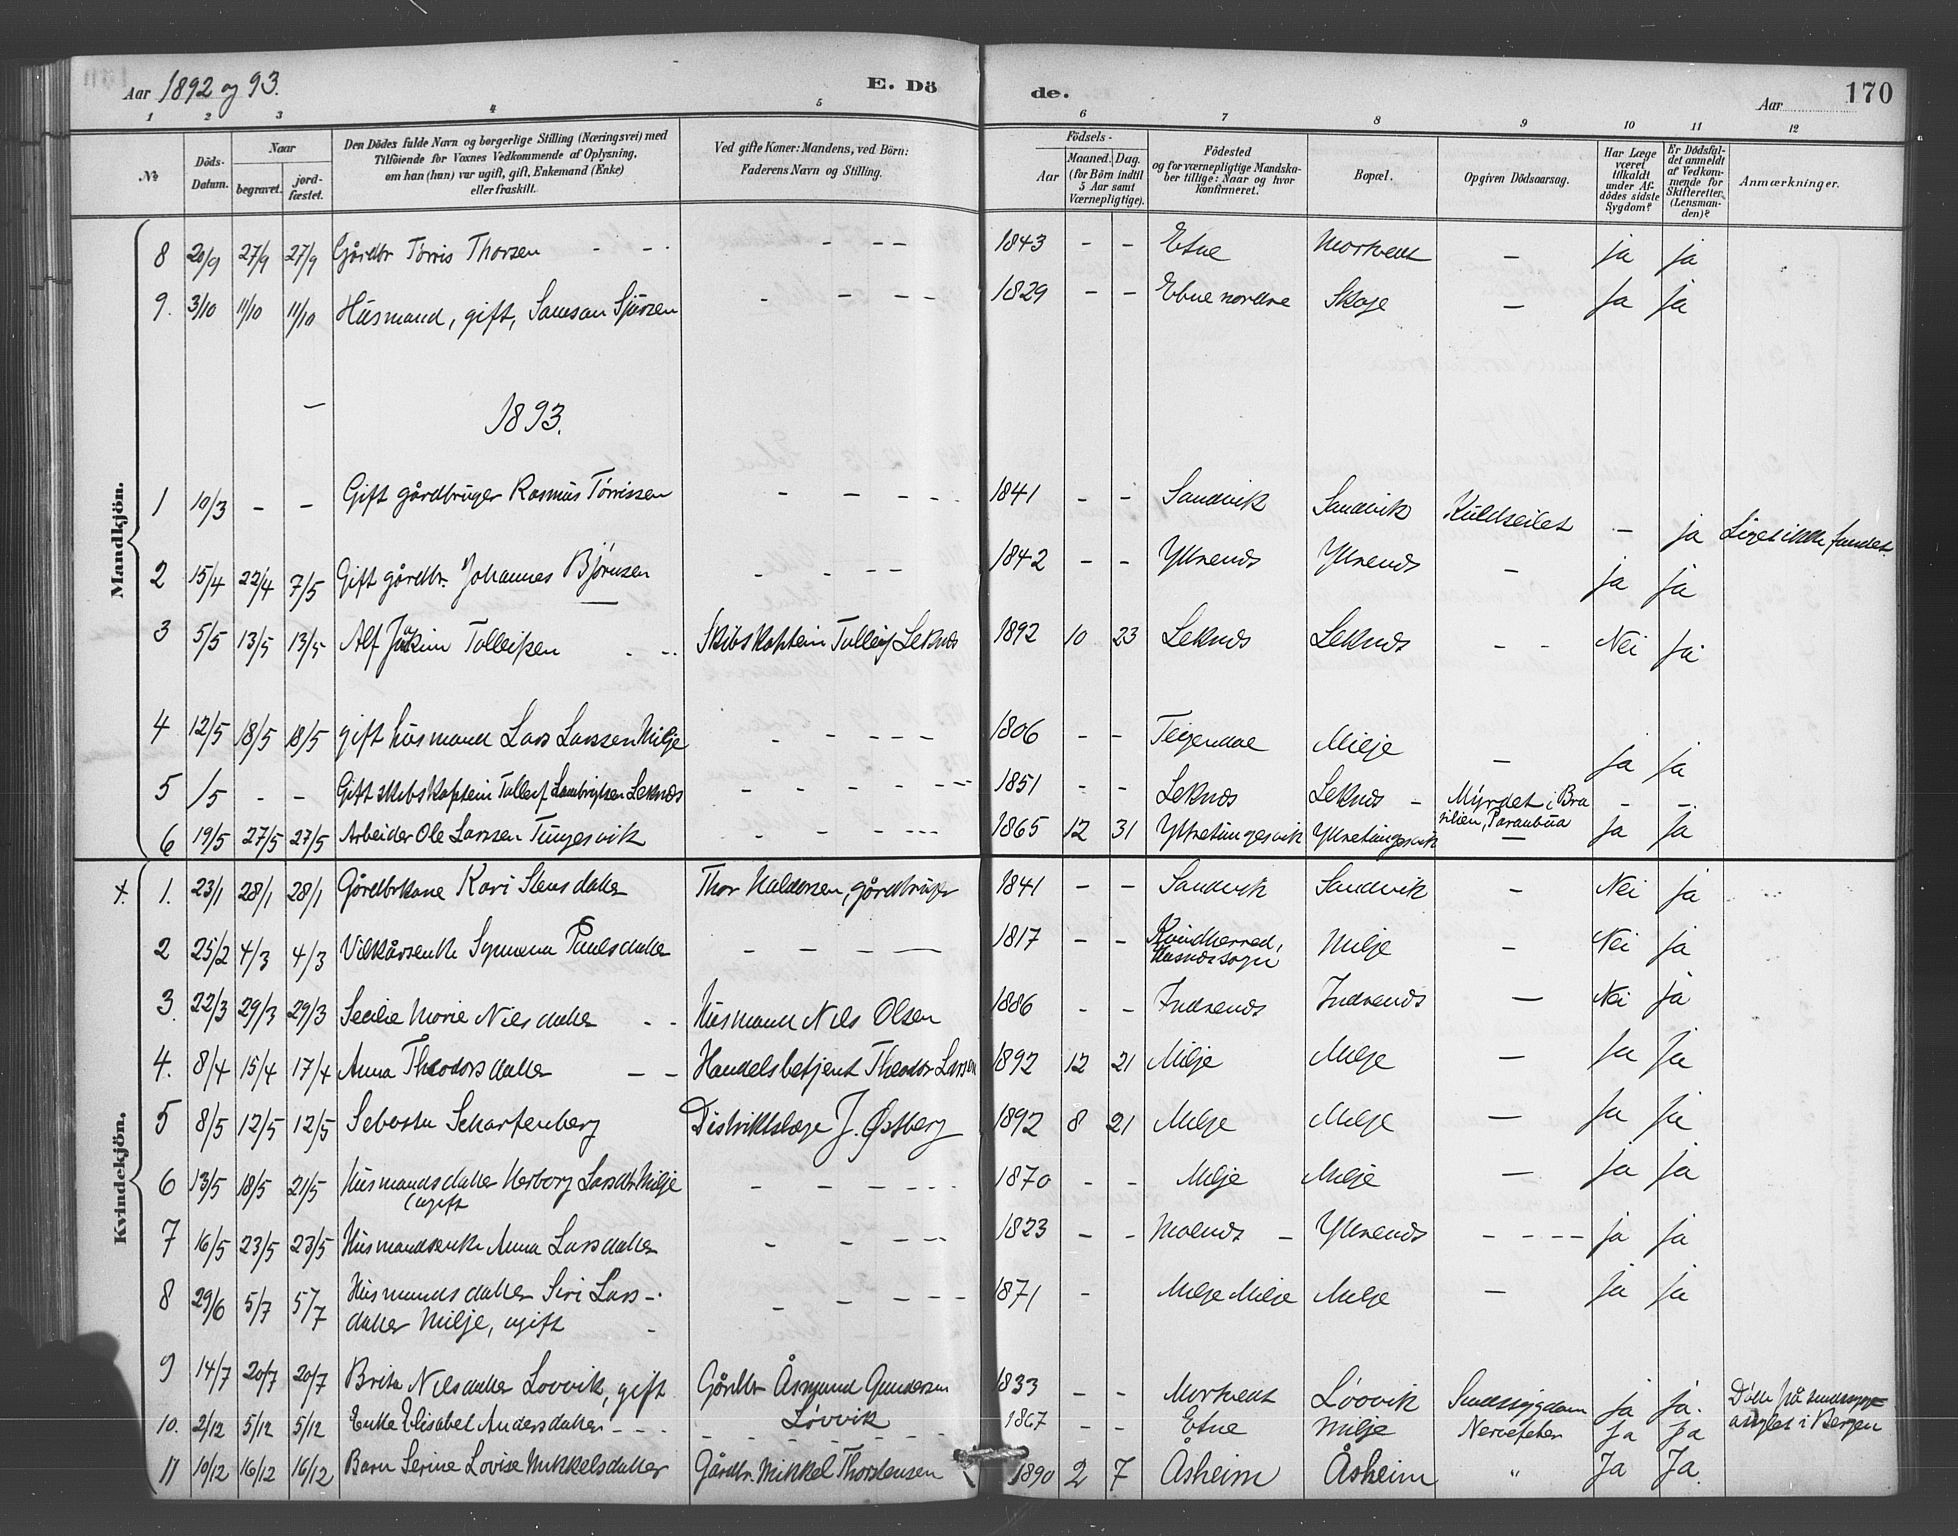 Aar 1892 og 93.
E. Dö
de.
Aar
170
1 2 3 4 5 6 7 8 9 10 11 12
№
Döds-Datum.
Naar
begravet.
jord-fæstet.
Den Dödes fulde Navn og borgerlige Stilling (Næringsvei) med
Tilföiende for Voxnes Vedkommende af Oplysning,
om han (hun) var ugift, gift, Enkemand (Enke)
eller fraskilt.
Ved gifte Koner: Mandens, ved Börn:
Faderens Navn og Stilling.
Födsels-
Aar
Maaned. Dag.
(for Börn indtil
5 Aar samt
Værnepligtige).
Födested
og for værnepligtige Mandska-
ber tillige: Naar og hvor
konfirmeret.
Bopæl.
Opgiven Dödsaarsag.
Har Læge
været
tilkaldt
under Af-
dödes sidste
Sygdom?
Er Dödsfal-
det anmeldt
af Vedkom-
mende for
Skifteretten
(Lensman-
den)?
Anmærkninger.
Mandkjön.
8 20/9 27/9 27/9 Gårdbr Tørris Thorsen - - - - - - 1843 - - Etne Mortvedt - ja ja
9. 3/10 11/10 11/10 Husmand, gift, Samson Sjursen - - - - 1829 - - Etne nordre Skoje - ja ja
1893.
1 10/3 - - Gift gårdbruger Rasmus Tørrissen - - - - 1841 - - Sandvik Sandvik Kuldseilet - ja Liget ikke fundet.
2 15/4 22/4 7/5 Gift gårdbr. Johannes Bjørnsen - - - - 1842 - - Ytrenæs Ytrenæs - ja ja
3 5/5 13/5 13/5 Alf Tolleifsen - - - Skibskaptein Tolleif Leknæs 1892 10 23 Leknæs Leknæs - - Nei ja
4 12/5 18/5 18/5 gift husmand Lars Larssen Milje - - - - - 1806 - - Teigendal Milje - ja ja
5 /5 - - Gift skibskaptein Tolleif Lambrigtsen Leknæs - - - - - 1851 - - Leknæs Leknæs - Myrdet i Bra - -
silien,
6 19/5 27/5 27/5 Arbeider Ole Larssen Tungesvik - - - - 1865 12 31 Ytretungesvik Ytretungesvik - ja ja
Kvindekjön.
+. 1. 23/1 28/1 28/1 Gårdbrkone Kari Stensdatter Thor Haldorsen, gårdbruger 1841 - - Sandvik Sandvik - Nei ja
2 25/2 4/3 4/3 Vilkårsenke Synneva Paulsdatter - - - - 1817 - - Kvindherred, Milje - Nei ja
Husnæs sogn
3. 22/3 29/3 29/3 Secilie Marie Nilsdatter - - Husmand Nils Olsen 1886 - - Indrenæs Indrenæs - Nei ja
4. 8/4 15/4 17/4 Anna Theodorsdatter - - Handelsbetjent Theodor Larsen 1892 12 21 Milje Milje - ja ja
5 8/5 12/5 12/5 Scharfenberg Distriktslæge J. Østberg 1892 8 21 Milje Milje - ja ja
6 13/5 18/5 21/5 Husmandsdatter Herborg Larsdtr Milje - - - - 1870 - - Milje Milje - ja ja
(ugift
7 16/5 23/5 23/5 Husmandsenke Anna Larsdatter - - - - 1823 - - Moenæs - Ytrenæs - - - - ja ja
8 29/6 5/7 5/7 Husmandsdatter Siri Lars- - - - - - 1871 - Milje Milje Milje - ja ja
datter Milje, ugift
9 14/7 20/7 20/7 Brita Nilsdatter Lovvik, gift Gårdbr Åsmund Gundersen 1833 - - Mortvedt Løvvik Sindssygdom ja ja. Døde på sindssyge-
Løvvik asylet i Bergen
10. 2/12 5/12 5/12 Enke Elisabet Andersdatter - - - - - - - 1867 - - Etne Milje Nervefeber ja ja
11 10/12 16/12 16/12 Barn Serine Lovise Mikkelsdatter Gårdbr. Mikkel Thorstensen 1890 2 7 Åsheim Åsheim " Ja Ja.